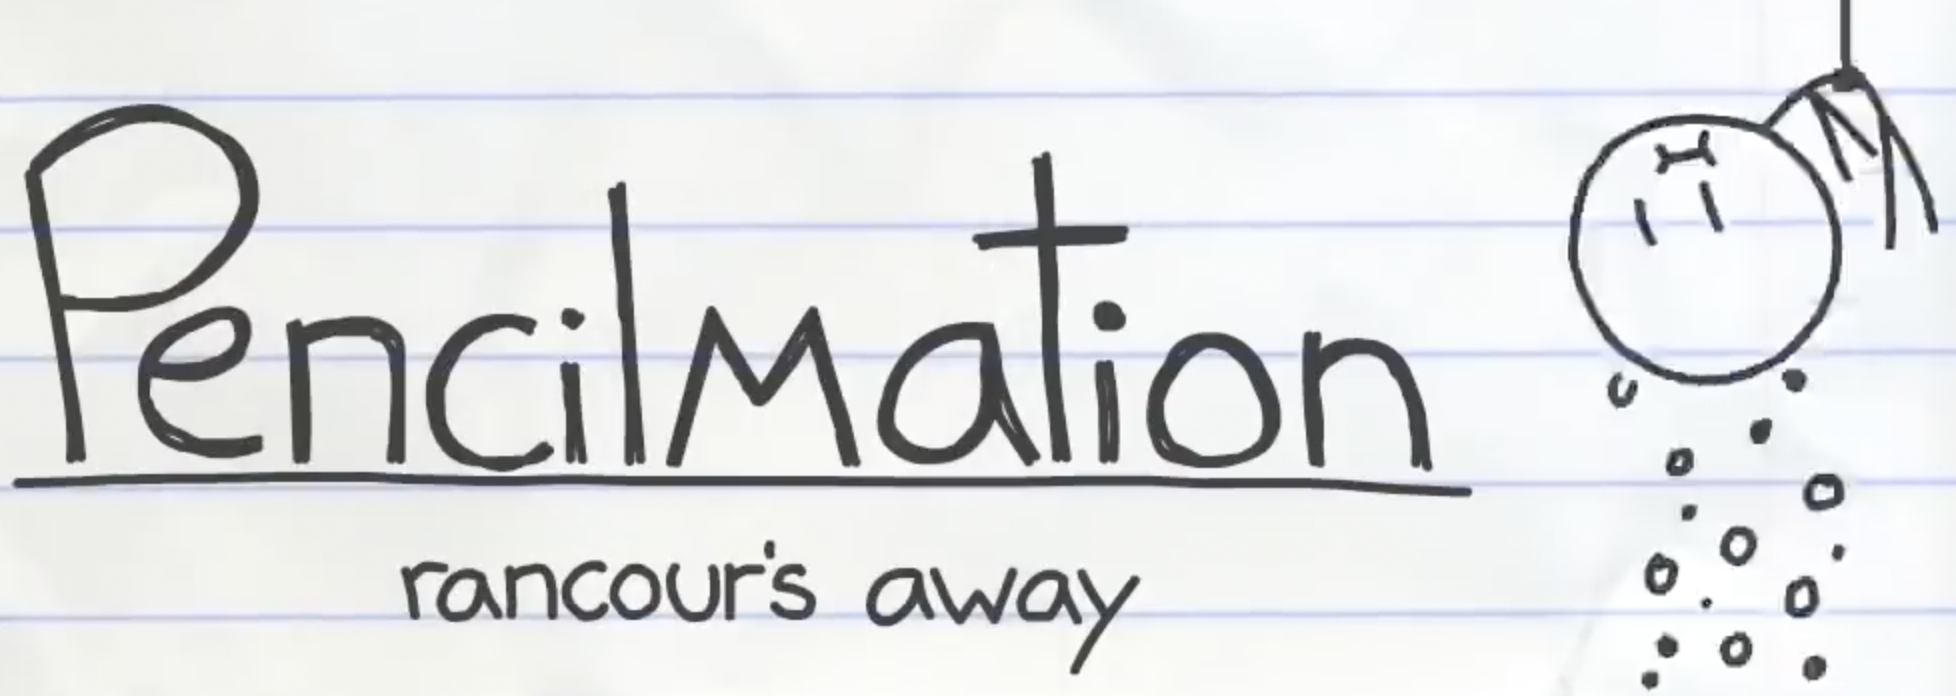 PencilMation
rancour's away